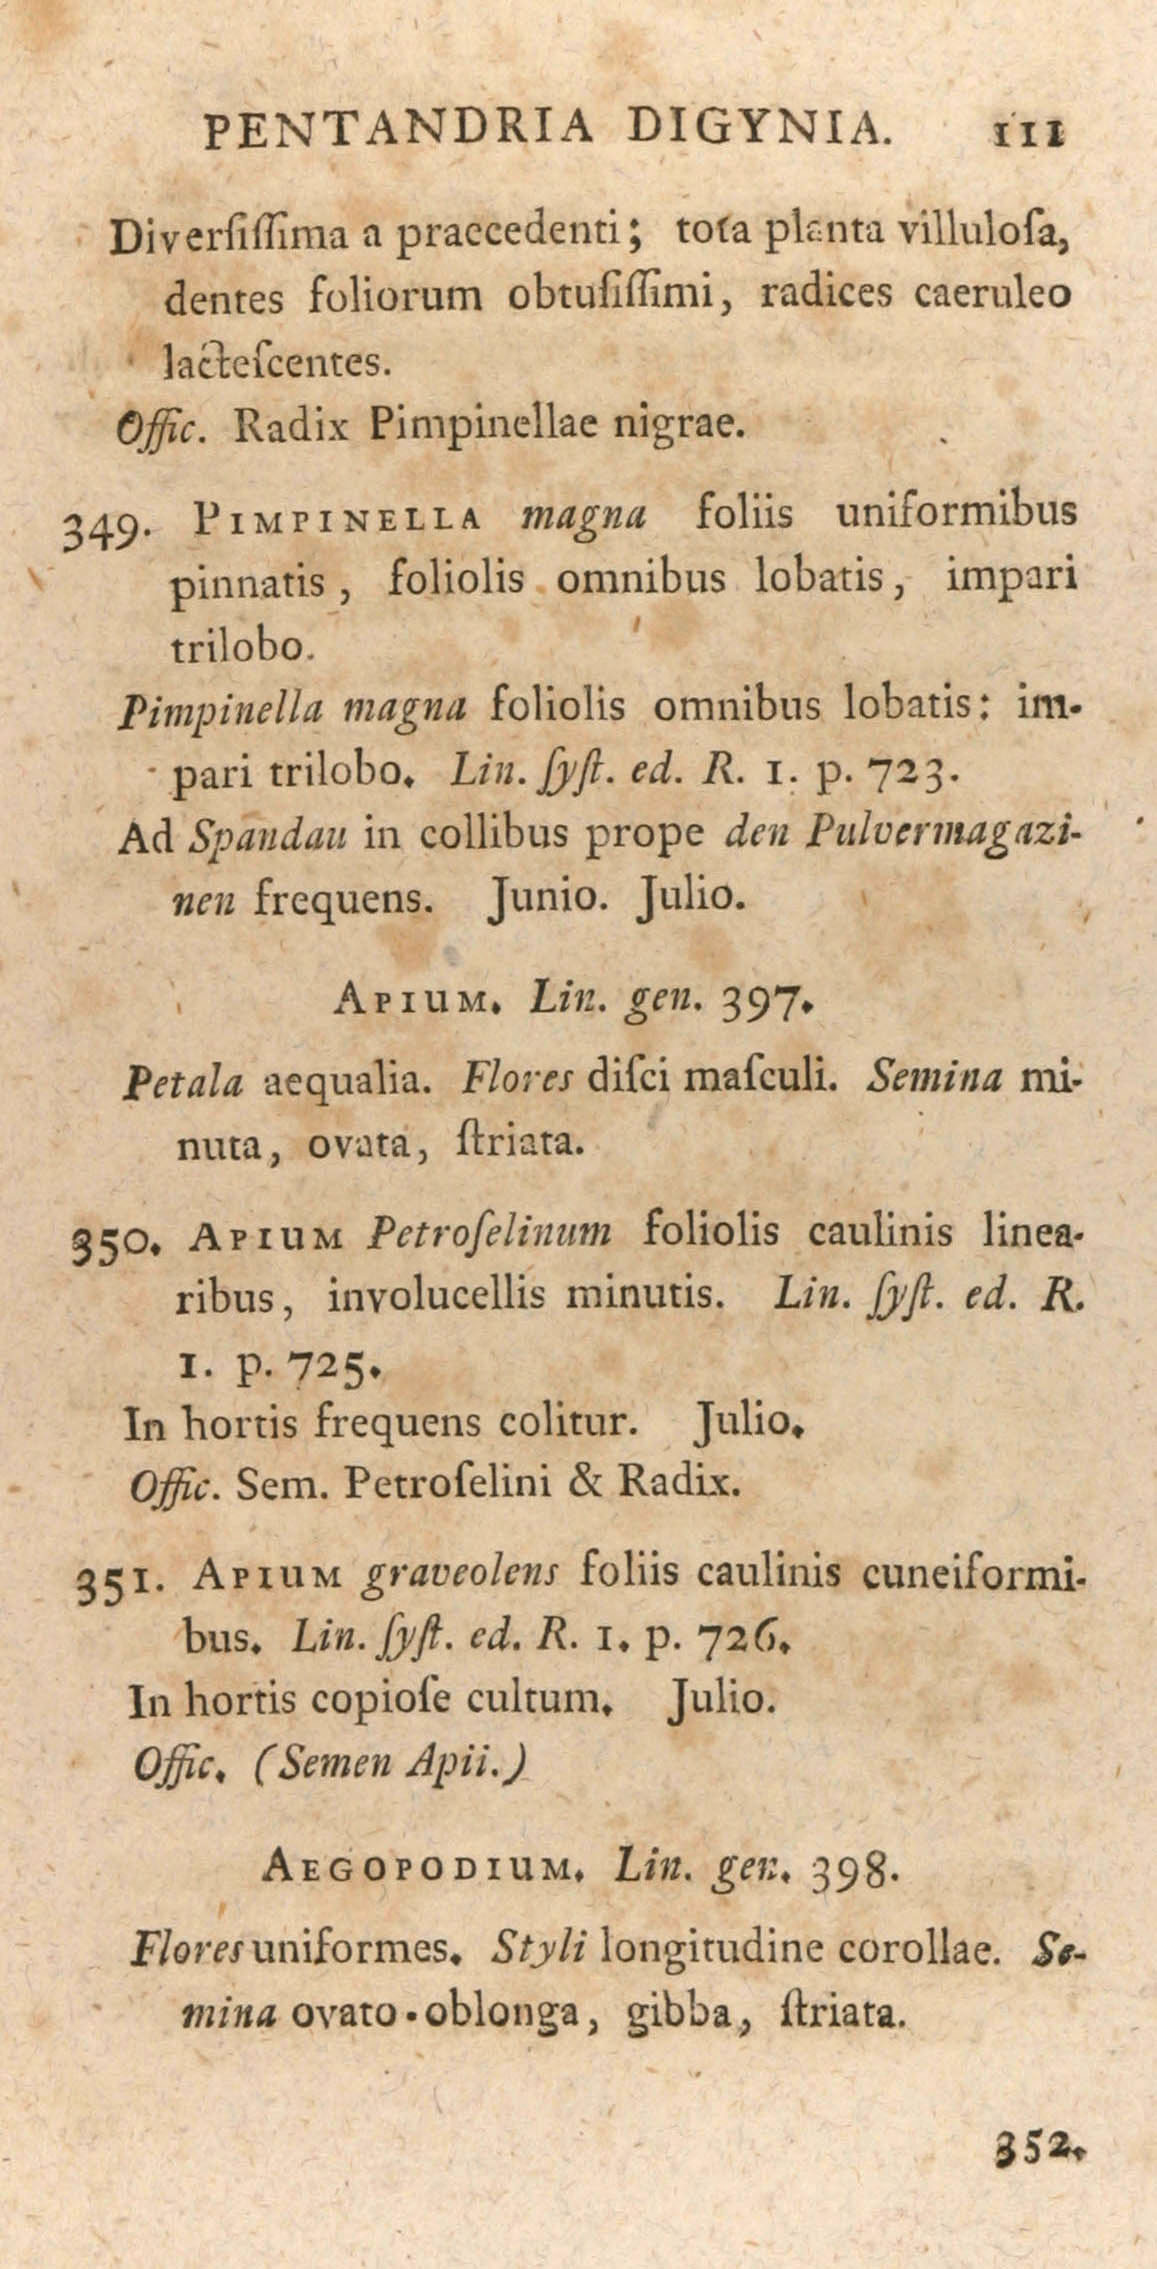 PENTANDRIA DIGYNIA. 111
Diverſiſſima a praecedenti; tota planta villuloſa,
dentes foliorum obtuſiſſimi, radices caeruleo
lacteſcentes.
Offic. Radix Pimpinellae nigrae.
349. PIMPINELLA magna foliis uniformibus
pinnatis, foliolis omnibus lobatis, impari
trilobo.
Pimpinella magna foliolis omnibus lobatis: im-
pari trilobo. Lin. ſyſt. ed. R. 1. p. 723.
Ad Spandau in collibus prope den Pulvermagazi-
nen frequens. Junio. Julio.
APIUM. Lin. gen. 397.
Petala aequalia. Flores diſci maſculi. Semina mi-
nuta, ovata, ſtriata.
350. APIUM Petroſelinum foliolis caulinis linea-
ribus, involucellis minutis. Lin. ſyſt. ed. R.
1. p. 725.
In hortis frequens colitur. Julio.
Offic. Sem. Petroſelini & Radix.
351. APIUM graveolens foliis caulinis cuneiformi-
bus. Lin. ſyſt. ed. R. 1. p. 726.
In hortis copioſe cultum. Julio.
Offic. (Semen Apii.)
AEGOPODIUM. Lin. gen. 398.
Flores uniformes. Styli longitudine corollae. Se-
mina ovato-oblonga, gibba, ſtriata.
352.